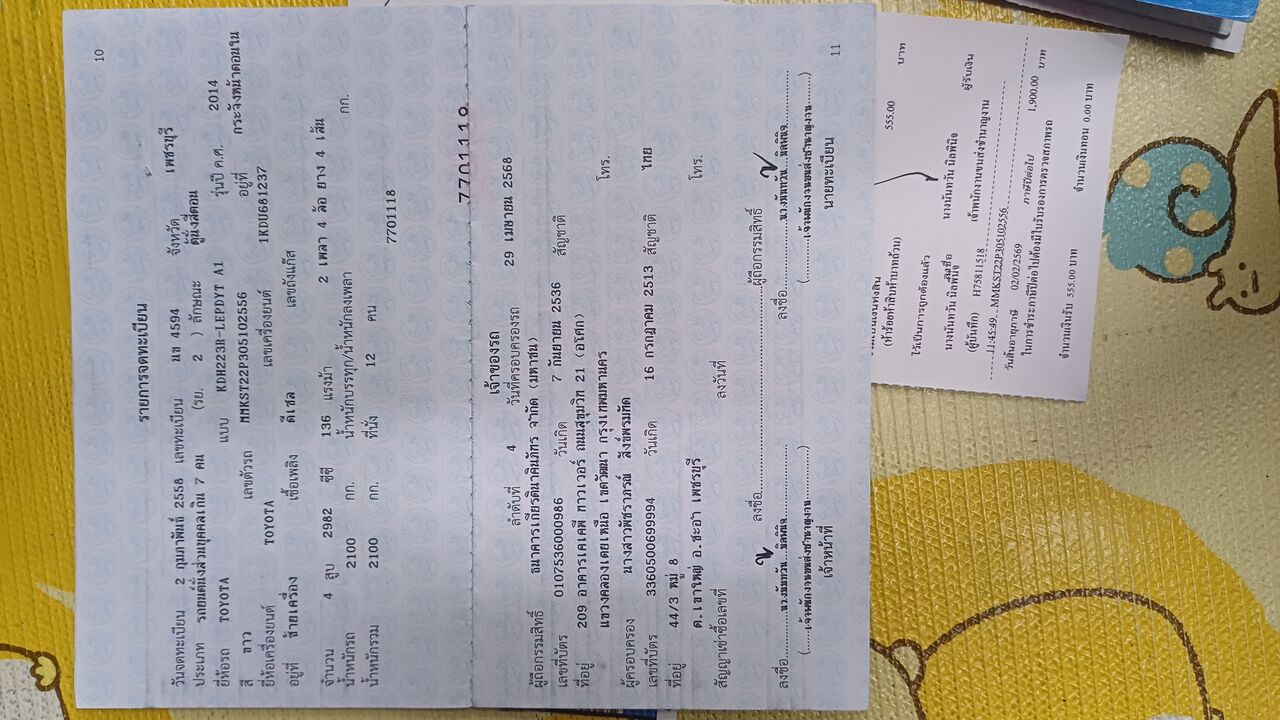 10
รายการจดทะเบียน
วันจดทะเบียน 2 กุมภาพันธ์ 2558 เลขทะเบียน นข 4594 จังหวัด เพชรบุรี
ประเภท รถยนต์นั่งส่วนบุคคลเกิน 7 คน (รย. 2 ) ลักษณะ ตู้นั่งสี่ตอน
ยี่ห้อรถ TOYOTA แบบ KDH223R-LEPDYT A1 รุ่นปี ค.ศ. 2014
สี ขาว เลขตัวรถ MMKST22P305102556 อยู่ที่ กระจังหน้าตอนใน
ยี่ห้อเครื่องยนต์ TOYOTA เลขเครื่องยนต์ 1KDU681237
อยู่ที่ ซ้ายเครื่อง เชื้อเพลิง ดีเซล เลขถังแก๊ส
จำนวน 4 สูบ 2982 ซีซี 136 แรงม้า 2 เพลา 4 ล้อ ยาง 4 เส้น
น้ำหนักรถ 2100 กก. น้ำหนักบรรทุก/น้ำหนักลงเพลา กก.
น้ำหนักรวม 2100 กก. ที่นั่ง 12 คน
7701118
7701119
เจ้าของรถ
ลำดับที่ 4 วันที่ครอบครองรถ 29 เมษายน 2568
ผู้ถือกรรมสิทธิ์ ธนาคารเกียรตินาคินภัทร จำกัด (มหาชน)
เลขที่บัตร 0107536000986 วันเกิด 7 กันยายน 2536 สัญชาติ
ที่อยู่ 209 อาคารเคเคพี ทาวเวอร์ ถนนสุขุมวิท 21 (อโศก)
แขวงคลองเตยเหนือ เขตวัฒนา กรุงเทพมหานคร โทร.
ผู้ครอบครอง นางสาวพัชราภรณ์ สังข์พรมทัด
เลขที่บัตร 3360500699994 วันเกิด 16 กรกฎาคม 2513 สัญชาติ ไทย
ที่อยู่ 44/3 หมู่ 8
ต.เขาใหญ่ อ.ชะอำ เพชรบุรี โทร.
สัญญาเช่าซื้อเลขที่ ลงวันที่
ลงชื่อ ผู้ถือกรรมสิทธิ์
ลงชื่อ นางนันทวัน นิลพินิจ ลงชื่อ นางนันทวัน นิลพินิจ
(เจ้าพนักงานขนส่งชำนาญงาน) (เจ้าพนักงานขนส่งชำนาญงาน)
เจ้าหน้าที่ นายทะเบียน
11
555.00 บาท
(ห้าร้อยห้าสิบห้าบาทถ้วน)
ไว้เป็นการถูกต้องแล้ว
นางนันทวัน นิลพินิจ
(ผู้บันทึก) H75811518 เจ้าพนักงานขนส่งชำนาญงาน ผู้รับเงิน
11:45:49 - MMKST22P305102556
วันสิ้นอายุภาษี 02/02/2569 ภาษีปีต่อไป 1,900.00 บาท
ในการชำระภาษีปีต่อไปต้องมีใบรับรองการตรวจสภาพรถ
จำนวนเงินรับ 555.00 บาท จำนวนเงินทอน 0.00 บาท